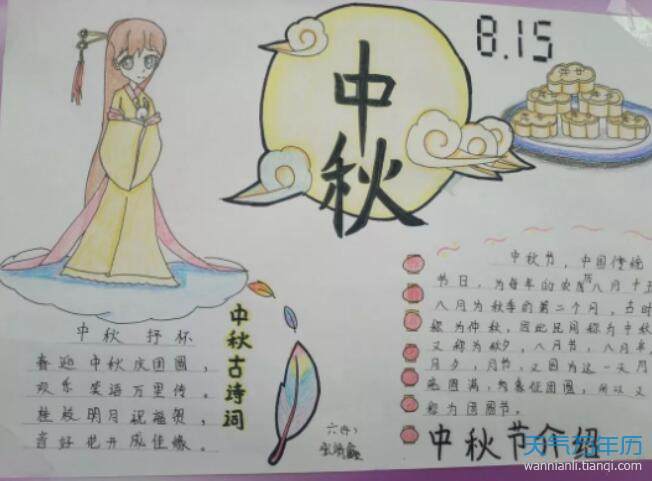 中秋
8.15
中秋 抒怀
喜迎中秋庆团圆，
欢乐笑语万里传。
桂殿明月祝福贺，
喜好花开成佳缘。
中秋古诗词
中秋节，中国传统
节日，为每年的农历八月十五
八月为秋季的第二个月，古时
称为仲秋，因此民间称为中秋
又称为秋夕，八月节，八月半，
月夕，月节，又因为这一天月
亮圆满，象征团圆，所以又
称为团圆节。
中秋节介绍
天气万年历
wannianli.tianqi.com